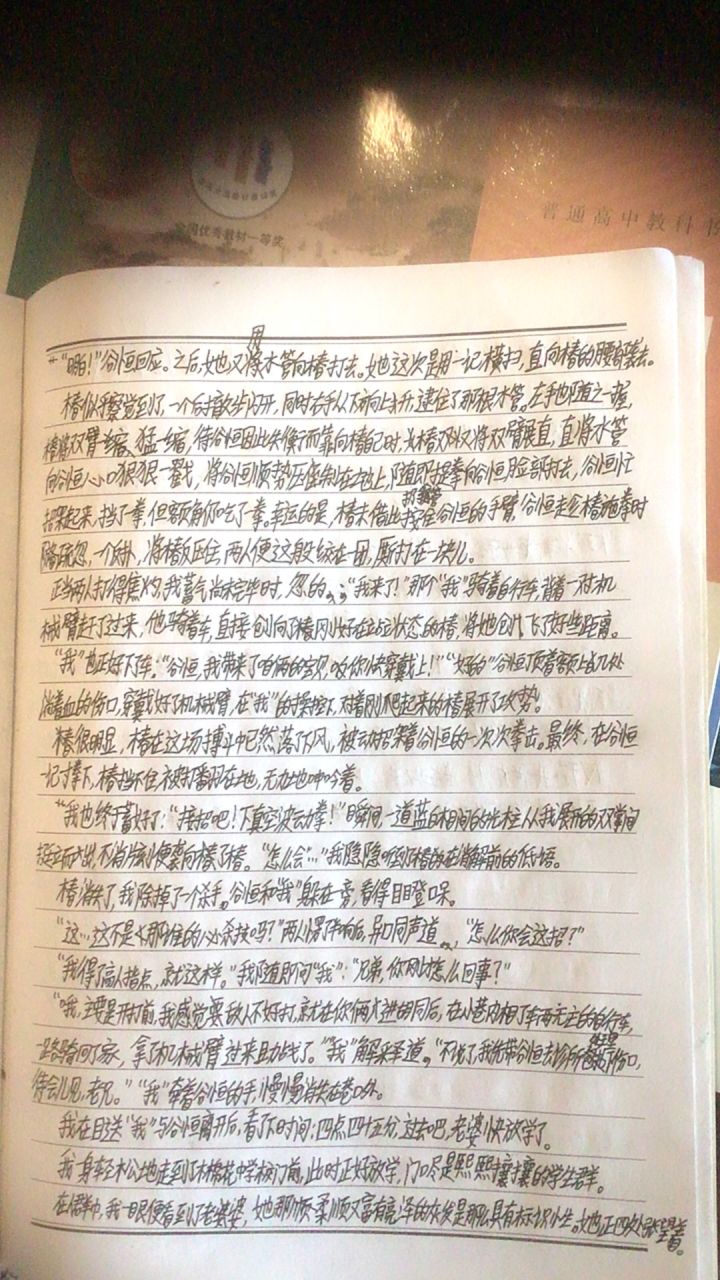 全国优秀教材一等奖
普通高中教科书
“明白！”谷恒回应。之后，她又用水管向椿打去。她这次是用一记横扫，直向椿的腰部袭去。
椿似乎察觉到了，一个后撤步闪开，同时右手从下向上抬，逮住了那根水管。左手也随之一握，
椿将双臂一缩，猛一缩，待谷恒因此失衡而靠向椿自己时，椿又将双臂展直，直将水管
向谷恒心口狠狠一戳，将谷恒顺势压制在地上，随即提拳向谷恒脸部打去，谷恒忙
招架起来，挡了拳，但额角仍吃了一拳。幸运的是，椿未借此控制谷恒的手臂，谷恒趁椿施拳时
略疏忽，一个后扑，将椿反压住，两人便这般绞在一团，厮打在一块儿。
正当两人打得焦灼，我蓄气尚未完毕时，忽的，“我来了！”那个“我”骑着自行车，背着一对机
械臂赶了过来，他骑着车，直接创向了椿刚好在站立状态的椿，将她创飞了好些距离。
“我”也正好下车：“谷恒，我带来了咱俩的宝贝，你快穿戴上！”“好的”谷恒顶着额上几处
淌着血的伤口，穿戴好了机械臂，在“我”的操控下，对着刚爬起来的椿展开了攻势。
很明显，椿在这场搏斗中已然落了下风，被动招架着谷恒的一次次拳击。最终，在谷恒
一记寸拳下，椿挡不住，被打翻在地，无力地呻吟着。
“我也终于蓄好了：“接招吧！真空波动拳！”瞬间，一道蓝白相间的光柱从我展开的双掌间
挺立而出，不消片刻便轰向椿了椿。“怎么会…”我隐隐听到了椿在消解前的低语。
椿消失了，我除掉了一个杀手。谷恒和“我”躲在一旁，看得目瞪口呆。
“这…这不是那谁的必杀技吗？”两人愣了半晌后，异口同声道，“怎么你会这招？”
“我得了高人指点，就这样。”我随即问“我”：“兄弟，你刚才怎么回事？”
“哦，主要是开打前，我感觉敌人不好打，就在你俩大进胡同后，在小巷内相了辆无主的自行车，
一路骑回了家，拿了机械臂过来助战了。”“我”解释道。“不说了，我先带谷恒去诊所处理伤口，
待会儿见，老兄。”“我”牵着谷恒的手，慢慢消失在巷口外。
我在目送“我”与谷恒离开后，看了下时间：四点四十五分，过去吧，老婆快放学了。
我一身轻松地走到了木棉花中学校门前，此时正好放学，门口尽是熙熙攘攘的学生群。
在人群中，我一眼便看到了老婆，她那顺柔顺又富有亮泽的灰发是那么具有标识性。她也正四处张望着。